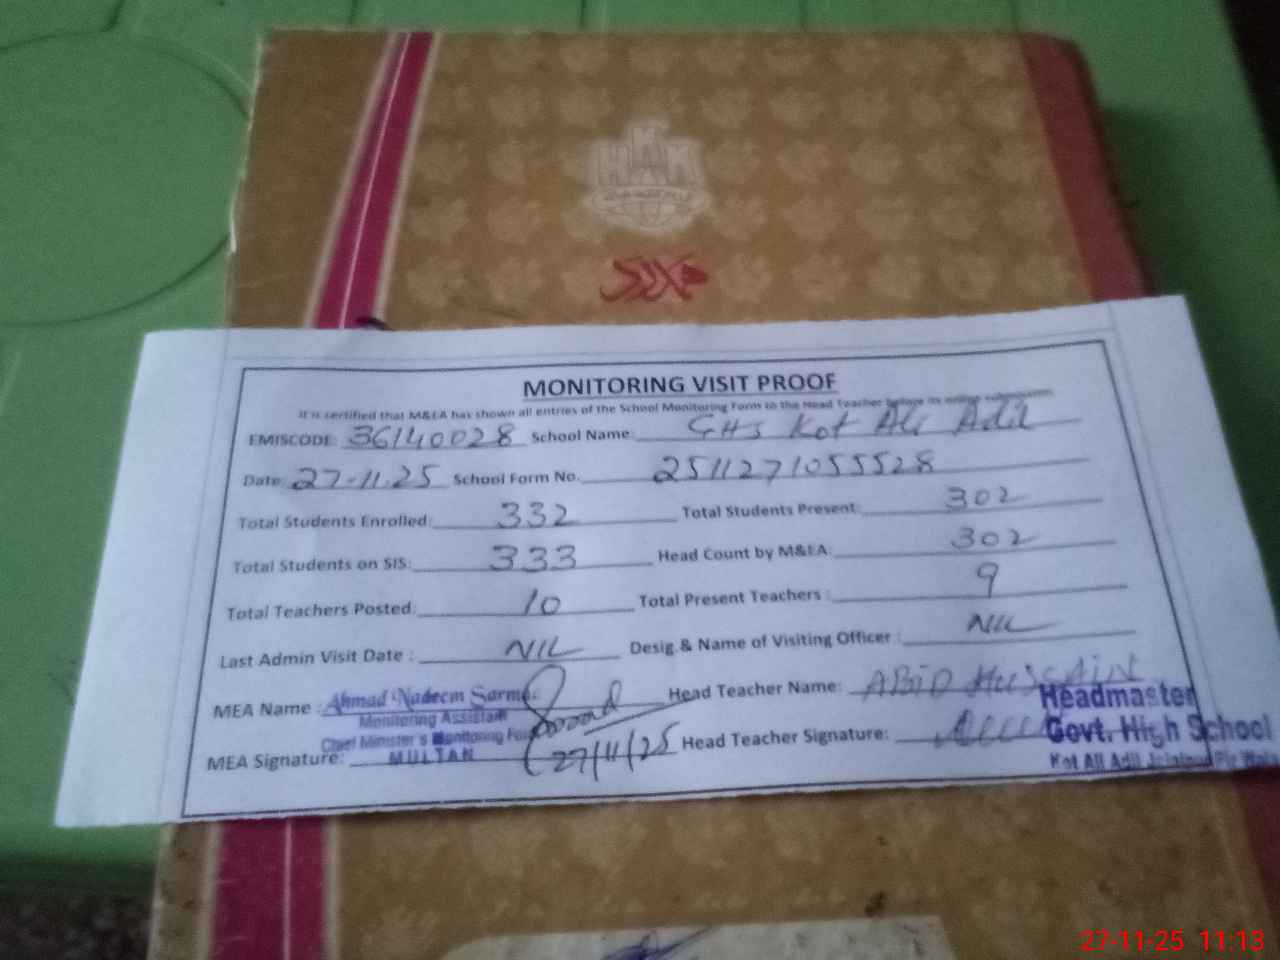 MONITORING VISIT PROOF
It is certified that M&EA has shown all entries of the School Monitoring Form to the Head Teacher before its online submission.
EMISCODE: 36140028 School Name: GHS Kot Ali Adil
Date: 27-11-25 School Form No. 2511271055528
Total Students Enrolled: 332 Total Students Present: 302
Total Students on SIS: 333 Head Count by M&EA: 302
Total Teachers Posted: 10 Total Present Teachers : 9
Last Admin Visit Date : NIL Desig.& Name of Visiting Officer : NIL
MEA Name : Ahmad Nadeem Head Teacher Name: ABID HUSSAIN
Monitoring Assistant
Chief Minister's Monitoring
MULTAN
Headmaster
Govt. High School
Kot Ali Adil
MEA Signature: 27/11/25 Head Teacher Signature:
27-11-25 11:13